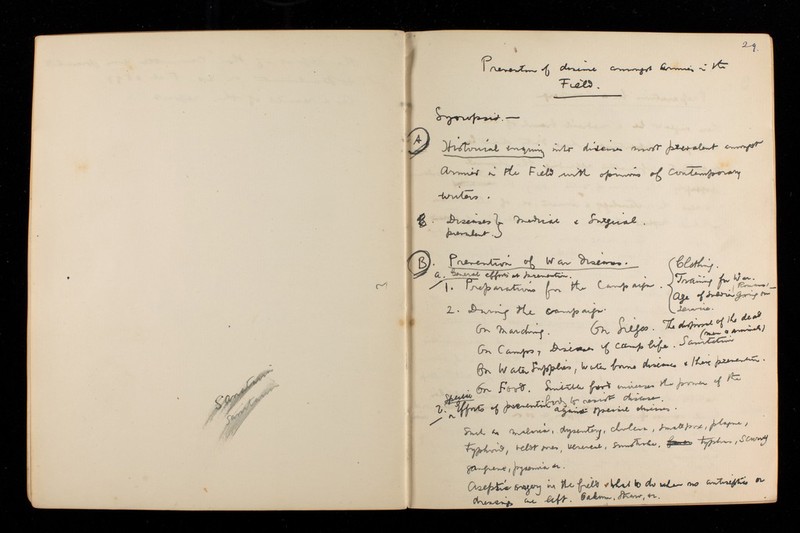 29.
Prevention of disease amongst Armies in the
Field.
Synopsis.—
A Historical enquiry into diseases most prevalent amongst
Armies in the Field with opinions of Contemporary
writers.
B. Diseases } Medical & Surgical.
prevalent.
B. Prevention of War Diseases.
a. General efforts at prevention.
1. Preparations for the Campaign. { Clothing.
Training for War.
Age of Soldiers going on
Service.
2. During the campaign.
On Marching. On Sieges. The disposal of the dead
(men & animals)
On Camps, Diseases of Camp life. Sanitation
On Water Supplies, Water borne diseases & their prevention.
On Food. Suitable food increases the power of the
body to resist disease.
Specific
2. Efforts of prevention against special diseases.
Such as malaria, dysentery, cholera, smallpox, plague,
Typhoid, veldt sores, venereal, sunstroke, Typhus, Scurvy
gangrene, pyaemia
Aseptic surgery in the field & what to do when no antiseptics or
dressings are left. Oakum, Straw,
Sanitation